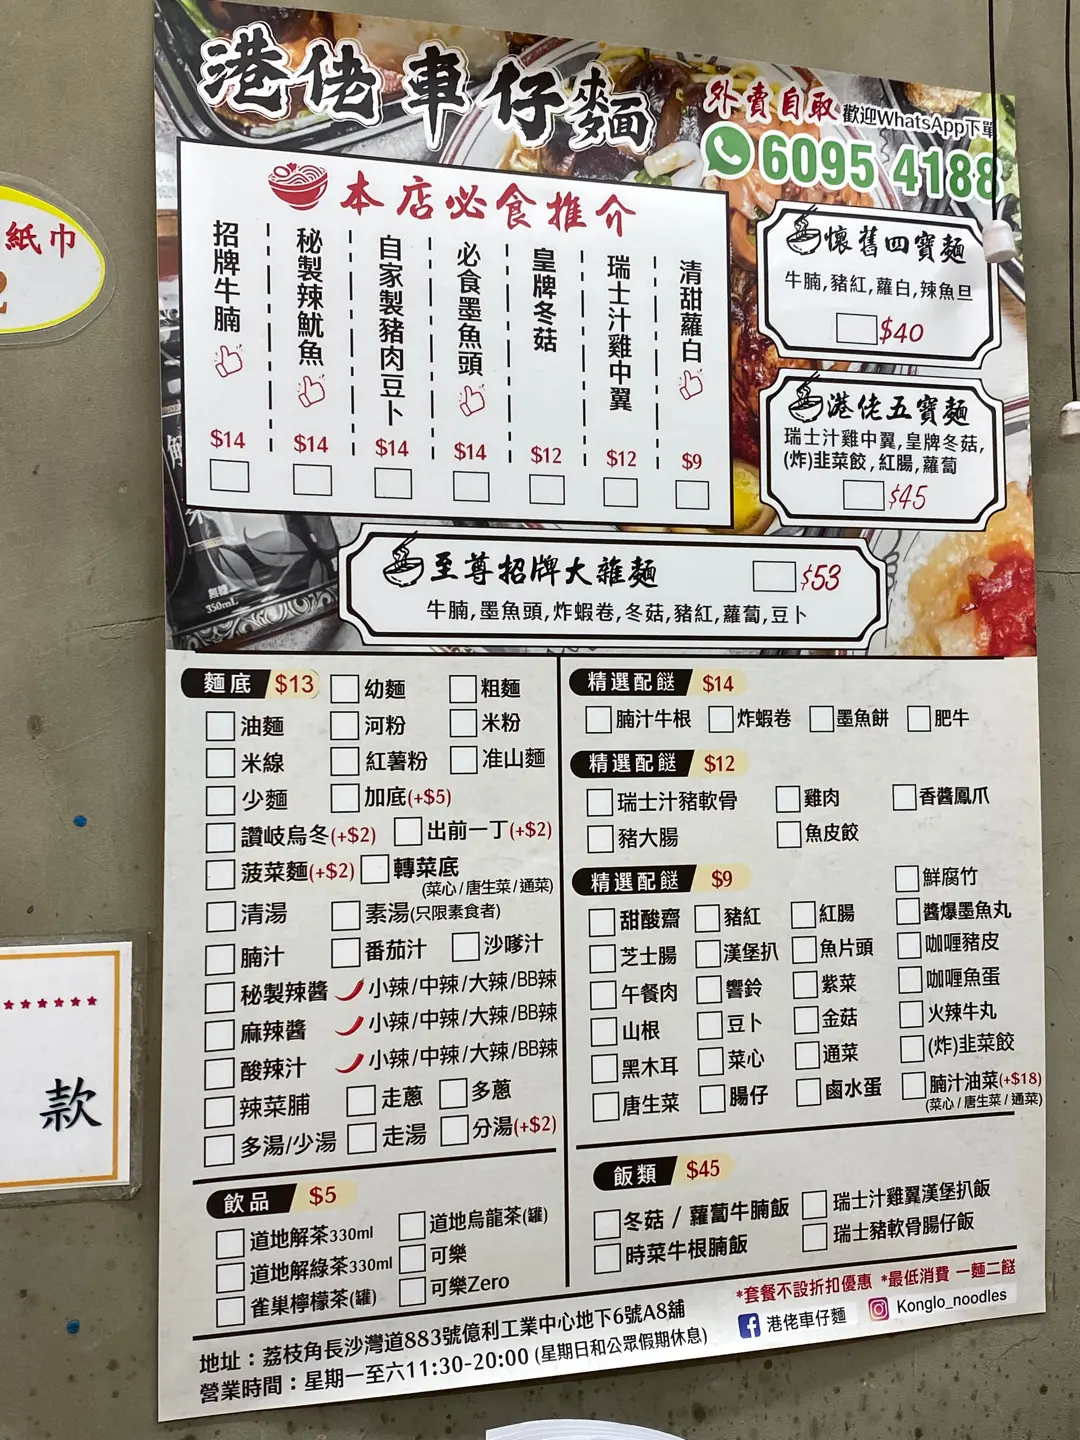 港佬車仔麵
外賣自取 歡迎WhatsApp下單
6095 4188
本店必食推介
招牌牛腩 $14
秘製辣魷魚 $14
自家製豬肉豆卜 $14
必食墨魚頭 $14
皇牌冬菇 $12
瑞士汁雞中翼 $12
清甜蘿白 $9
懷舊四寶麵
牛腩,豬紅,蘿白,辣魚旦
$40
港佬五寶麵
瑞士汁雞中翼,皇牌冬菇,
(炸)韭菜餃,紅腸,蘿蔔
$45
至尊招牌大雜麵 $53
牛腩,墨魚頭,炸蝦卷,冬菇,豬紅,蘿蔔,豆卜
麵底 $13 幼麵 粗麵
油麵 河粉 米粉
米線 紅薯粉 准山麵
少麵 加底(+$5)
讚岐烏冬(+$2) 出前一丁(+$2)
菠菜麵(+$2) 轉菜底
(菜心/唐生菜/通菜)
清湯 素湯(只限素食者)
腩汁 番茄汁 沙嗲汁
秘製辣醬 小辣/中辣/大辣/BB辣
麻辣醬 小辣/中辣/大辣/BB辣
酸辣汁 小辣/中辣/大辣/BB辣
辣菜脯 走蔥 多蔥
多湯/少湯 走湯 分湯(+$2)
飲品 $5
道地解茶330ml 道地烏龍茶(罐)
道地解綠茶330ml 可樂
雀巢檸檬茶(罐) 可樂Zero
精選配餸 $14
腩汁牛根 炸蝦卷 墨魚餅 肥牛
精選配餸 $12
瑞士汁豬軟骨 雞肉 香醬鳳爪
豬大腸 魚皮餃
精選配餸 $9 鮮腐竹
甜酸齋 豬紅 紅腸 醬爆墨魚丸
芝士腸 漢堡扒 魚片頭 咖喱豬皮
午餐肉 響鈴 紫菜 咖喱魚蛋
山根 豆卜 金菇 火辣牛丸
黑木耳 菜心 通菜 (炸)韭菜餃
唐生菜 腸仔 鹵水蛋 腩汁油菜(+$18)
(菜心/唐生菜/通菜)
飯類 $45
冬菇 / 蘿蔔牛腩飯 瑞士汁雞翼漢堡扒飯
時菜牛根腩飯 瑞士豬軟骨腸仔飯
*套餐不設折扣優惠 *最低消費 一麵二餸
港佬車仔麵 Konglo_noodles
地址：荔枝角長沙灣道883號億利工業中心地下6號A8舖
營業時間：星期一至六11:30-20:00 (星期日和公眾假期休息)
紙巾
2
款
無糖
350mL